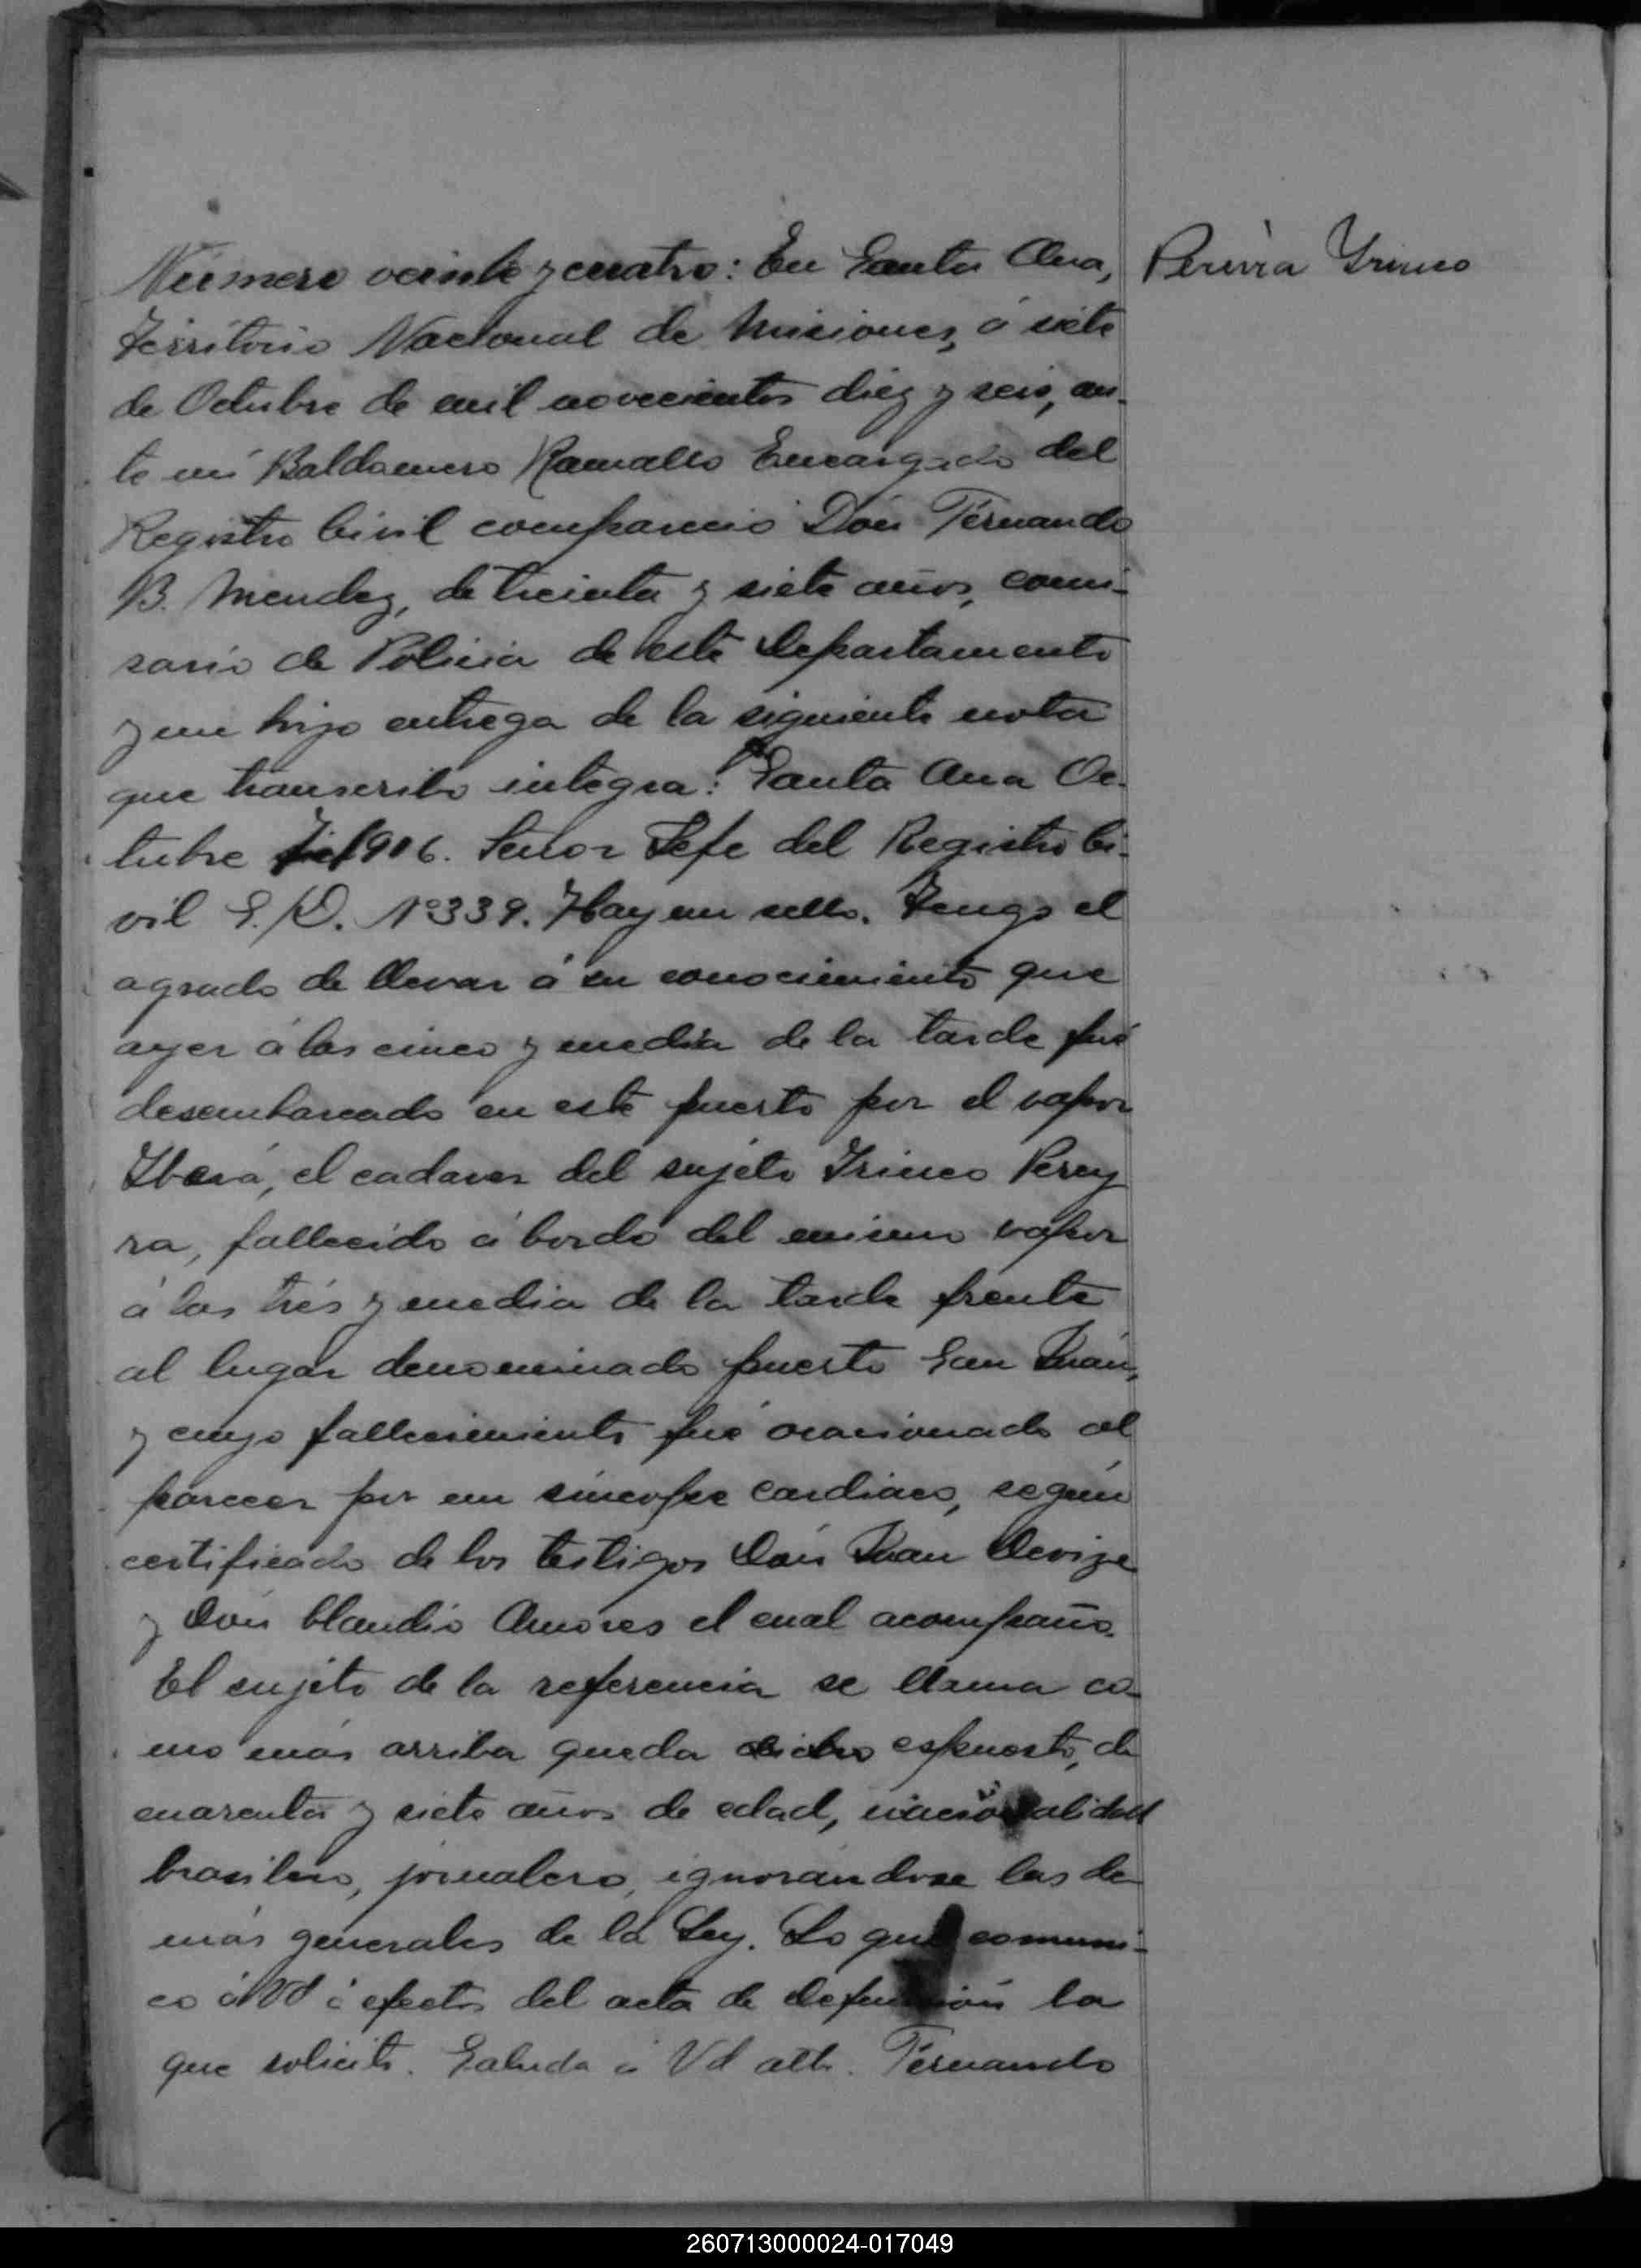 Número veinte y cuatro: En Santa Ana,
Pereira Irineo
Territorio Nacional de Misiones, á siete
de Octubre de mil novecientos diez y seis, an-
te mi Baldomero Ramallo Encargado del
Registro Civil compareció Dón Fernando
B. Mendez, de treinta y siete años, comi-
sario de Policia de este Departamento
y me hizo entrega de la siguiente nota
que transcribo integra: "Santa Ana Oc-
tubre 7/1916. Señor Jefe del Registro Ci-
vil S./D. Nº 339. Hay un sello. Tengo el
agrado de llevar á su conocimiento que
ayer á las cinco y media de la tarde fué
desembarcado en este puerto por el vapor
Iberá, el cadaver del sujeto Irineo Perey
ra, fallecido á bordo del mismo vapor
á las trés y media de la tarde frente
al lugar denominado puerto San Juán,
y cuyo fallecimiento fué ocasionado al
parecer por un síncope cardiaco, según
certificado de los testigos Dón Juan
y Dón Claudio Amores el cual acompaño.
El sujeto de la referencia se llama co-
mo más arriba queda dicho espuesto, de
cuarenta y siete años de edad, nacionalidad
brasilero, jornalero, ignorándose las de
más generales de la Ley. Lo que comuni-
co á Vd á efectos del acta de defunción la
que solicito. Saluda á Vd att. Fernando
260713000024-017049